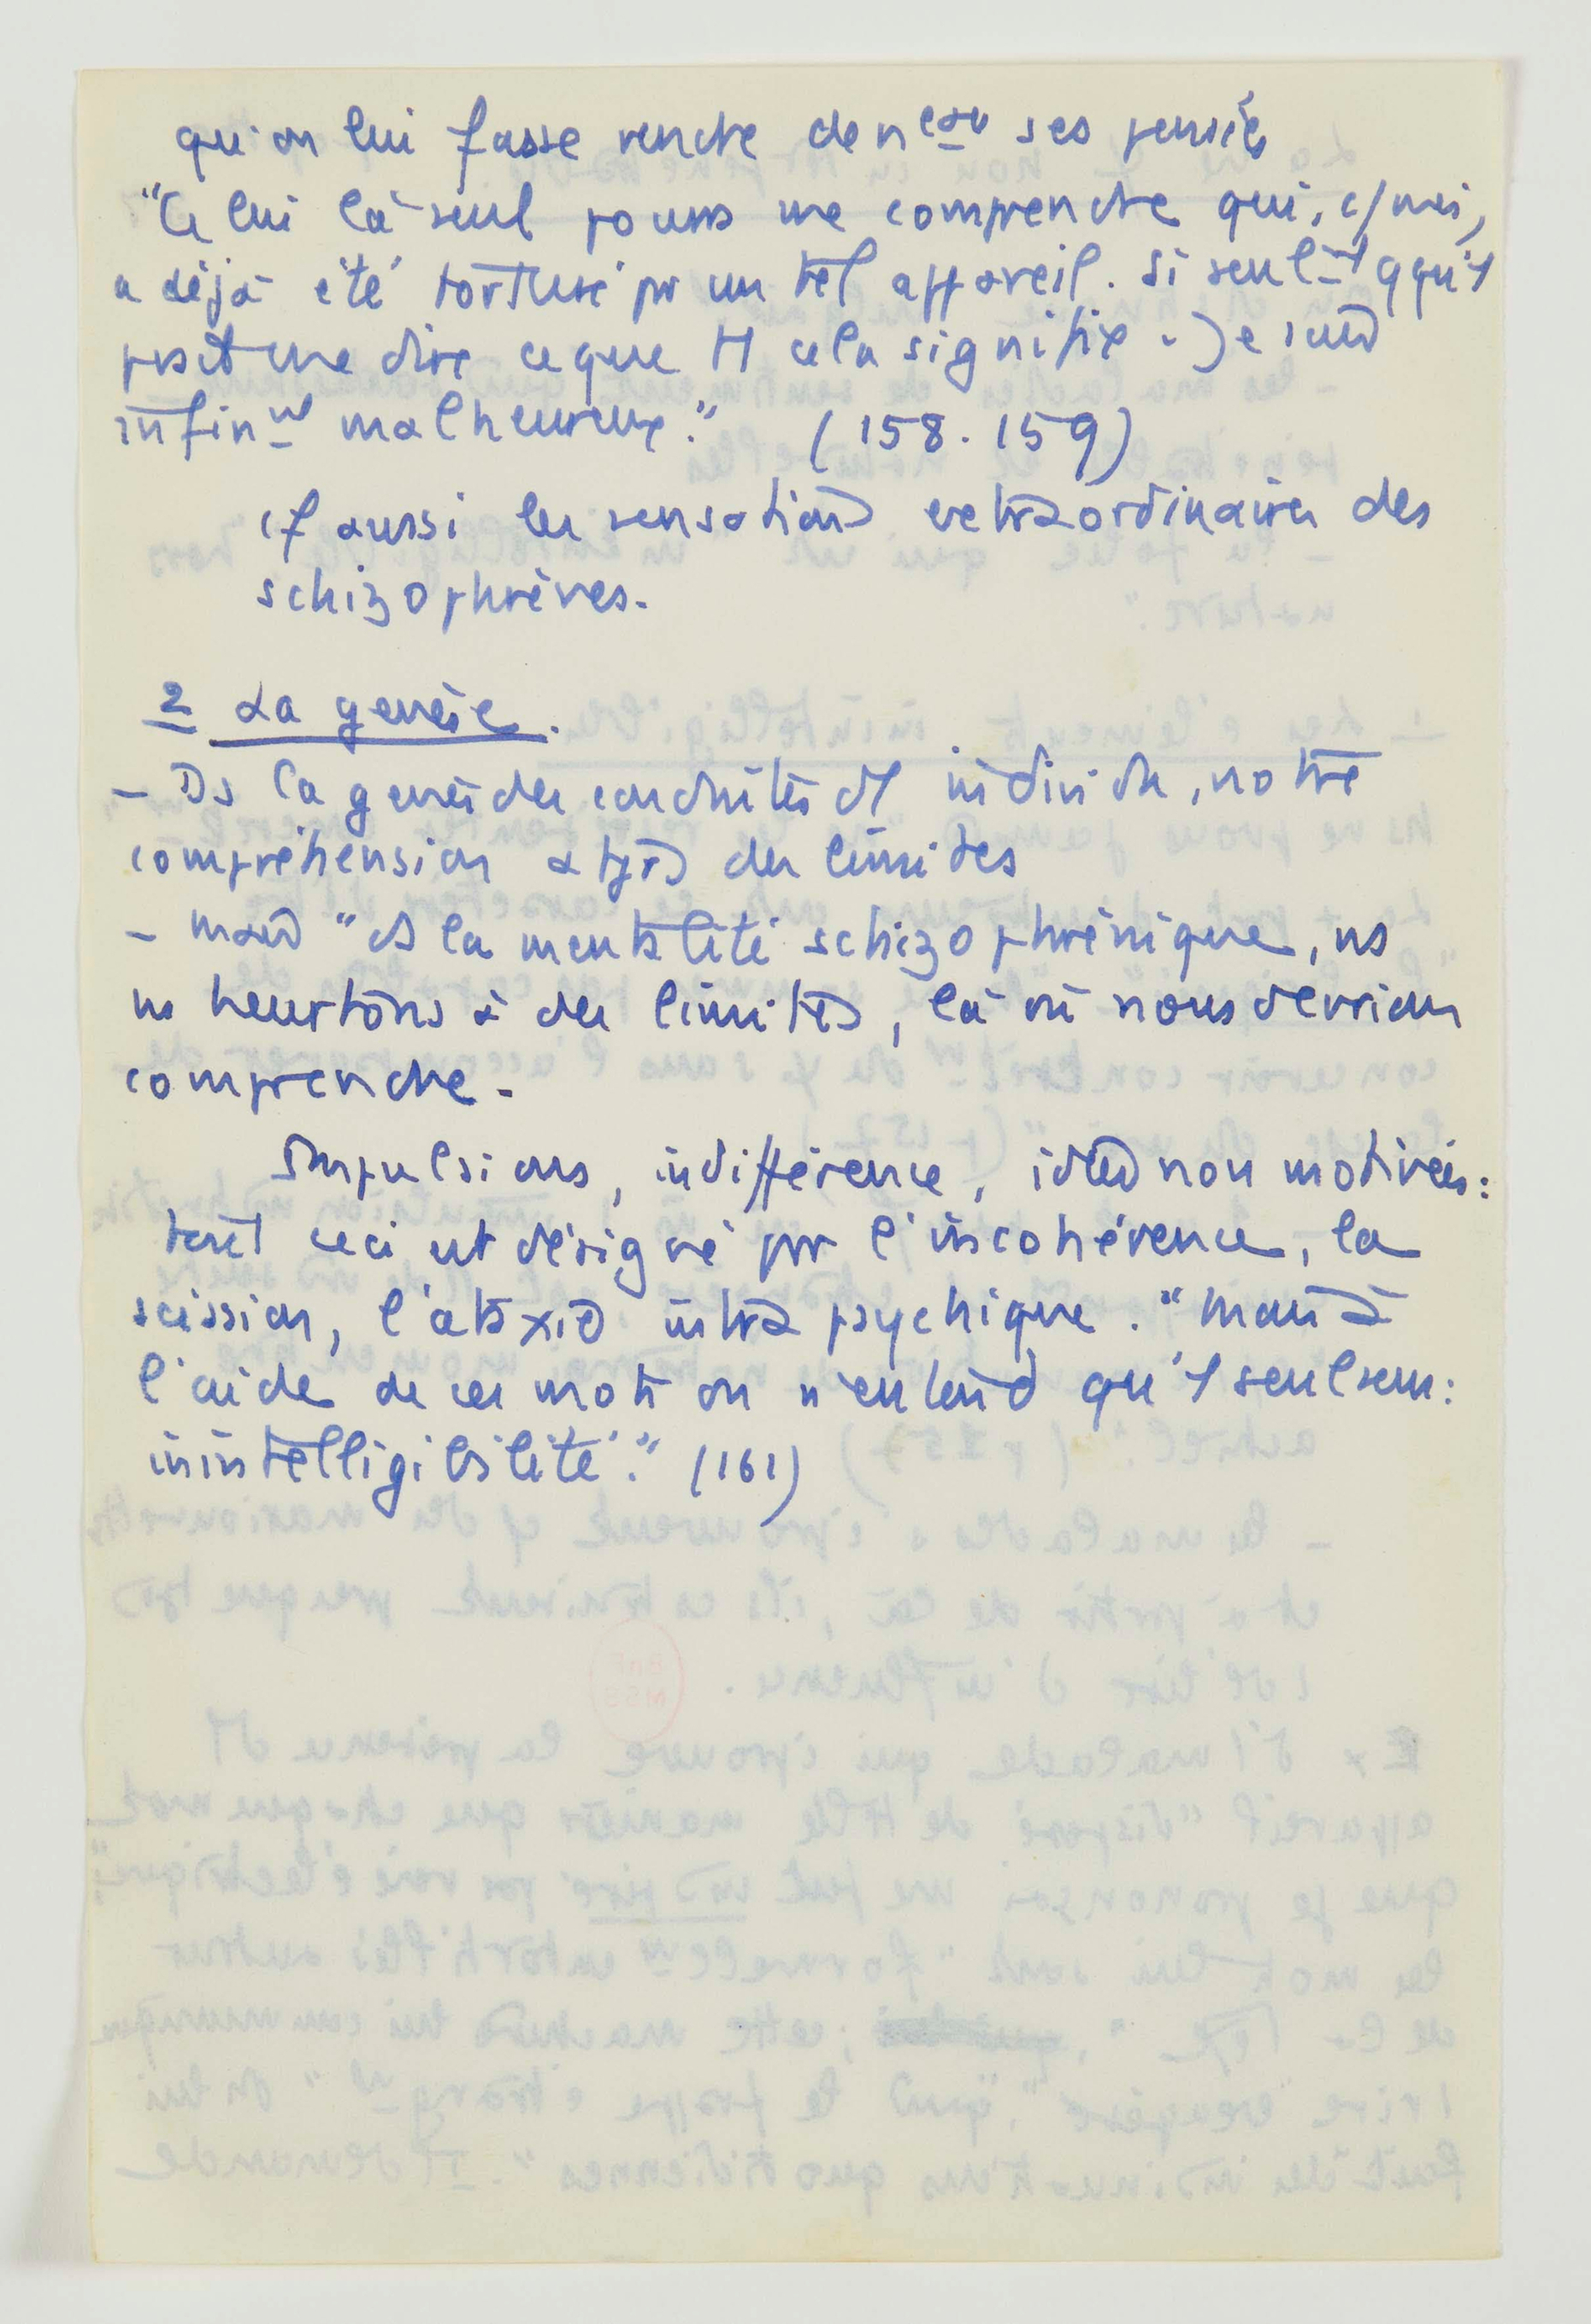 qu'on lui fasse rendre de n^eau ses pensées
"Celui là seul pourra me comprendre qui, c/ moi,
a déjà été torturé pr un tel appareil. Si seul^t qqu'1
peut me dire ce que tt cela signifie. Je suis
infin^nt malheureux." (158.159)
cf aussi les sensations extraordinaires des
schizophrènes.
2 La genèse.
- Ds la genèse des conduites d'1 individu, notre
compréhension a tjrs des limites
- mais "ds la mentalité schizophrénique, ns
ns heurtons à des limites, là où nous devrions
comprendre.
Impulsions, indifférence, idées non motivées:
tout ceci est désigné pr l'incohérence, la
scission, l'ataxie intra psychique. "mais à
l'aide de ces mots on n'entend qu'1 seul sens:
inintelligibilité." (161)
BnF
MSS